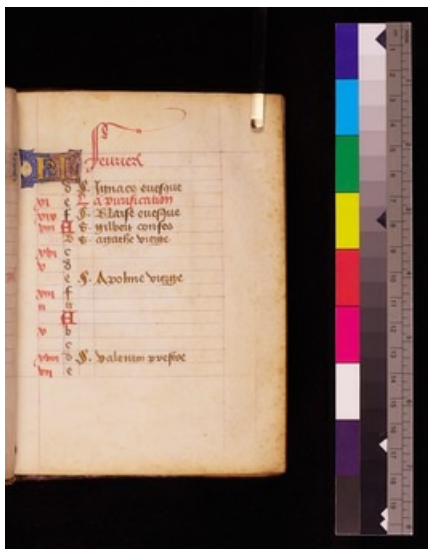 feurier
KL
d S. Ignace euesque
xi e La purification
xix f S. Blaise euesque
viii A S. gilbert confes
b S. agathe vierge
xvi c
v d
e S. Apoline vierge
xiii f
ii g
A
v b
c
d S. valentin
e